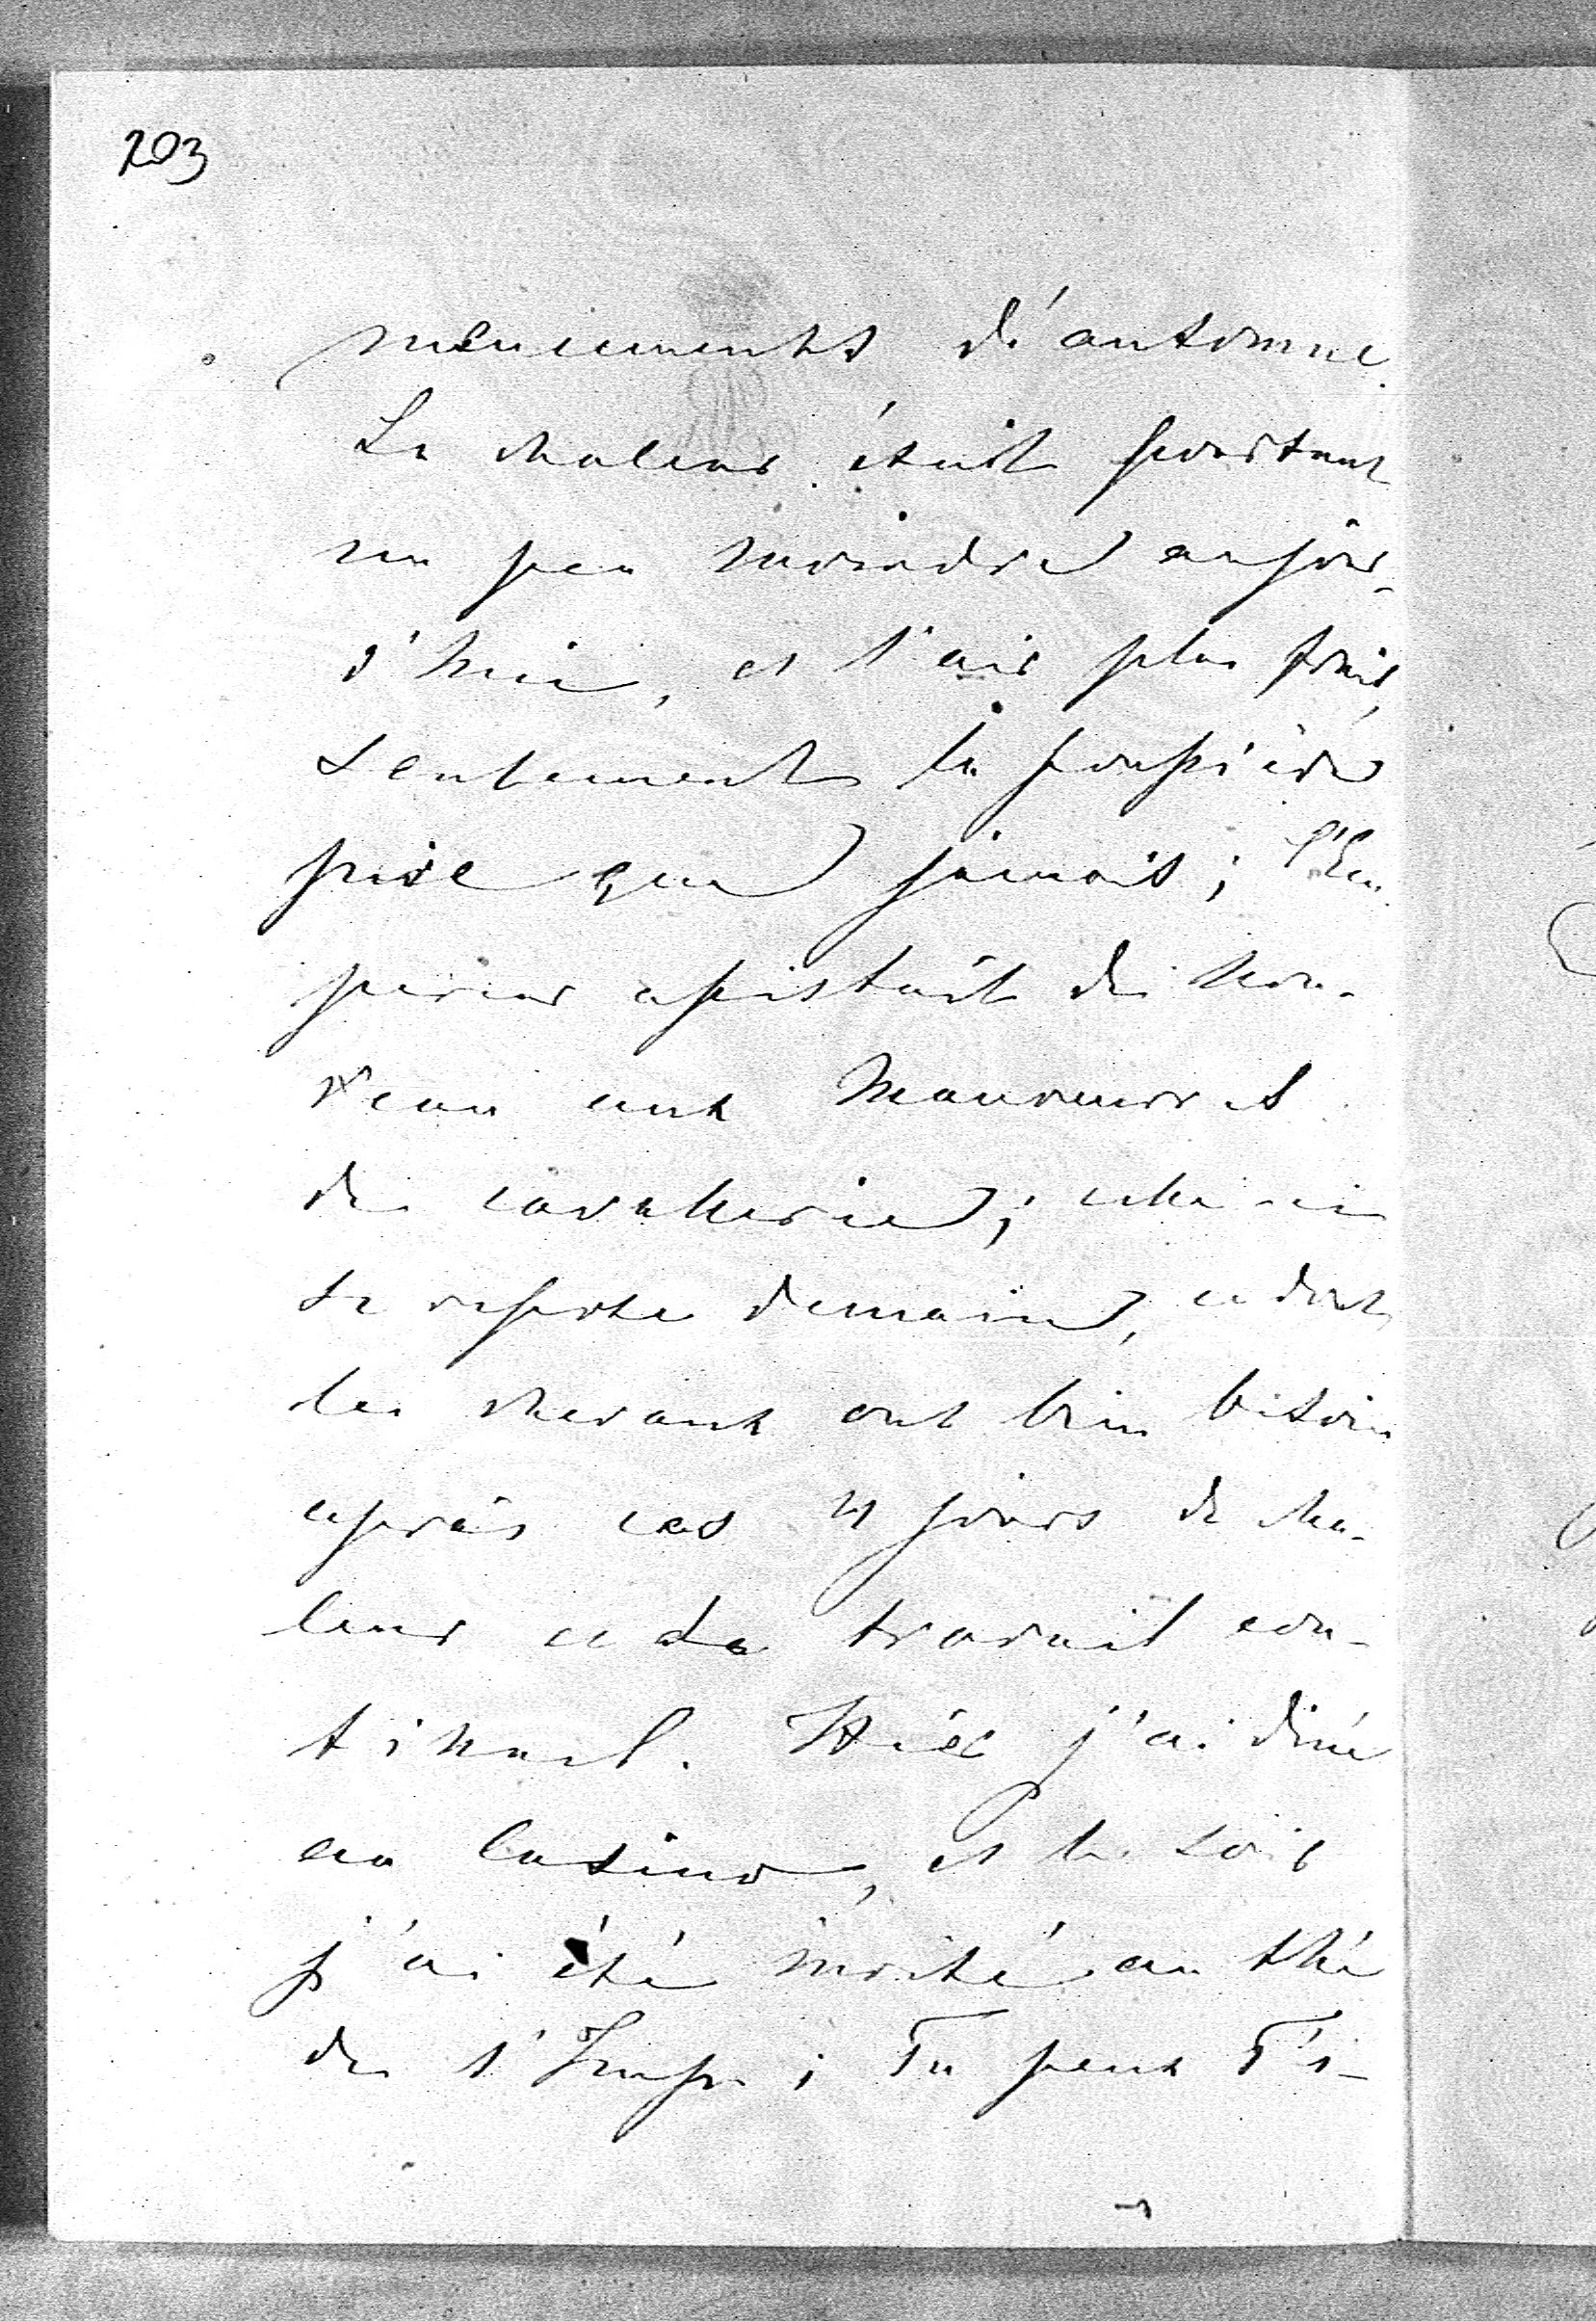 203
mencements d'automne.
La chaleur était pourtant
un peu moindre aujour-
d'hui, et l'air plus frais,
seulement la poussière
pire que jamais; l'Em-
pereur assistait de nou-
veau aux manœuvres
de cavallerie; celle-ci
se repose demain, ce dont
les chevaux ont bien besoin
après ces 4 jours de cha-
leur et de travail con-
tinuel. Hier j'ai diné
au Casino, et le soir
j'ai été invité au thé
de l'Imp.; Tu peux T'i-